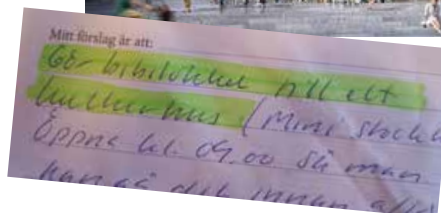 Mitt förslag är att:
Gör biblioteket till ett
kulturhus (Mini Stock
Öppna kl. 09.00 så man
kan gå dit innan